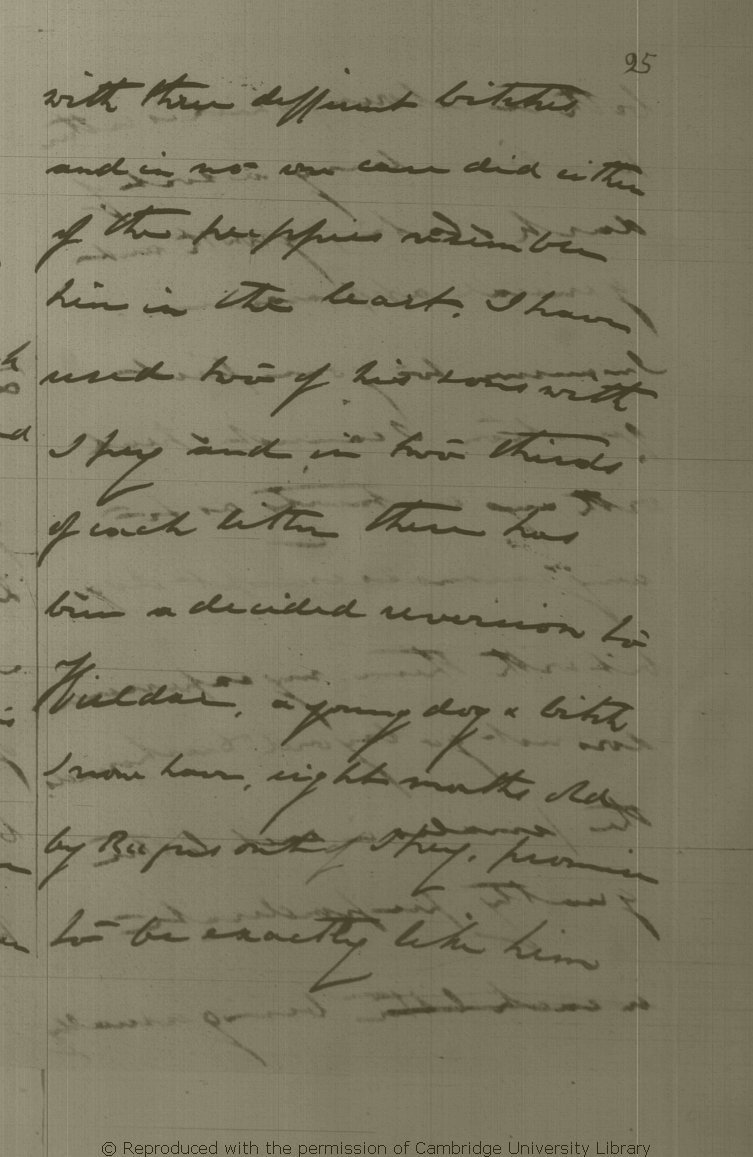 25
with three different bitches
and in no one case did either
of the puppies resemble
him in the least. I have
used two of his sons with
Spey and in two thirds
of each litter there has
been a decided reversion to
a young dog & bitch
I now have, eight months old,
by out of Spey, promise
to be exactly like him
© Reproduced with the permission of Cambridge University Library